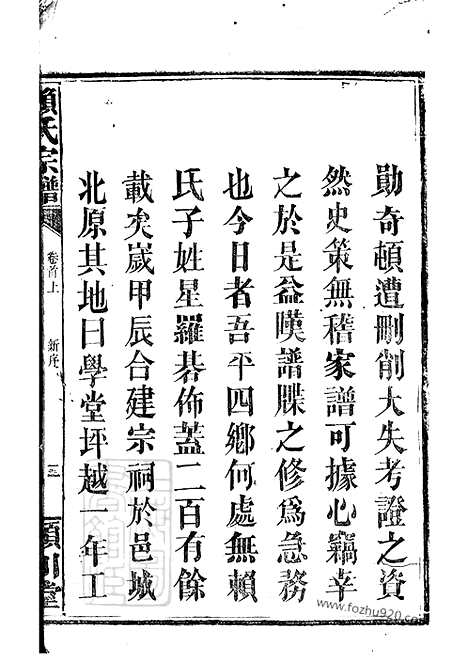 勛奇頓遭刪削大失考證之資
然史策無稽家譜可據心竊幸
之於是益嘆譜牒之修爲急務
也今日者吾平四鄉何處無賴
氏子姓星羅碁佈蓋二百有餘
載矣嵗甲辰合建宗祠於邑城
北原其地曰學堂坪越一年工
賴氏宗譜
卷首上
新序
三
潁川堂
www.fozhu920.com